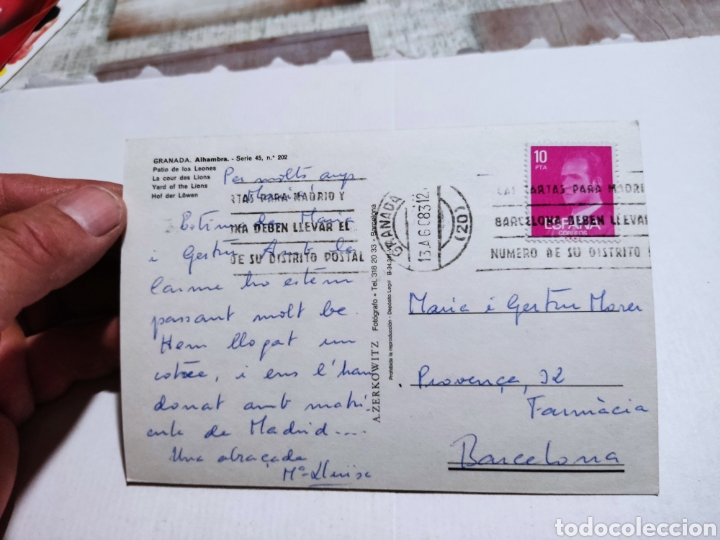 GRANADA. Alhambra. - Serie 45, n.° 202
Patio de los Leones
La cour des Lions
Yard of the Lions
Hof der Löwen
Per molts anys
RTAS PARA MADRID Y
ONA DEBEN LLEVAR EL
DE SU DISTRITO POSTAL
Estimada Maria
i Gertru. Amb la
Carme ho estem
passant molt be.
Hem llogat un
cotxe, i ens l'han
donat amb matrí-
cula de Madrid....
Una abraçada
Mª Lluïsa
A. ZERKOWITZ Fotógrafo - Tel. 318 20 33 - Barcelona
Prohibida la reproducción - Depósito Legal B-34
GRANADA
13 AGO 83 12
(20)
10
PTA
ESPAÑA
CORREOS
LAS CARTAS PARA MADRI
BARCELONA DEBEN LLEVAR
NUMERO DE SU DISTRITO
Maria i Gertru
Provença, 32
Farmàcia
Barcelona
todocoleccion